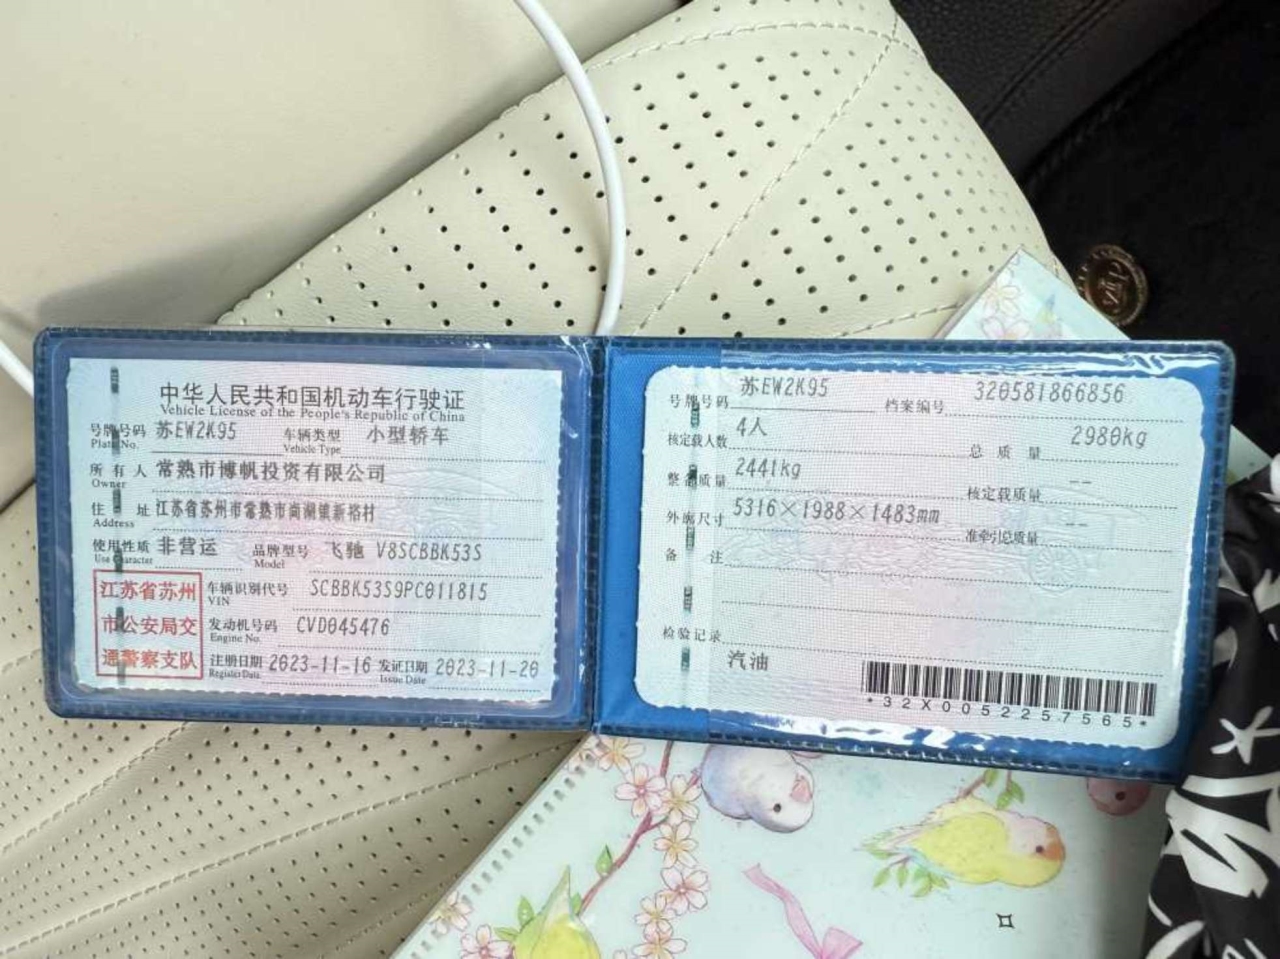 中华人民共和国机动车行驶证
Vehicle License of the People's Republic of China
号牌号码 苏EW2K95 车辆类型 小型轿车
Plate No. Vehicle Type
所有人 常熟市博帆投资有限公司
Owner
住址 江苏省苏州市常熟市尚湖镇新裕村
Address
使用性质 非营运 品牌型号 飞驰 V8SCBBK53S
Use Character Model
江苏省苏州
市公安局交
通警察支队
车辆识别代号 SCBBK53S9PC011815
VIN
发动机号码 CVD045476
Engine No.
注册日期 2023-11-16 发证日期 2023-11-20
Register Date Issue Date
号牌号码 苏EW2K95 档案编号 320581866856
核定载人数 4人 总质量 2980kg
整备质量 2441kg 核定载质量 --
外廓尺寸 5316×1988×1483mm 准牵引总质量 --
备注
检验记录
汽油
*32X0052257565*